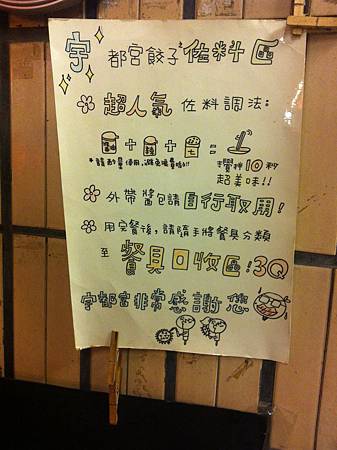 宇都宮餃子佐料區
超人氣佐料調法:
醬油 + 醋 + 七 =
*請酌量使用,避免浪費哦!!
攪拌10秒
超美味!!
外帶醬包請自行取用!
用完餐後,請隨手將餐具分類
至餐具回收區!3Q
宇都宮非常感謝您